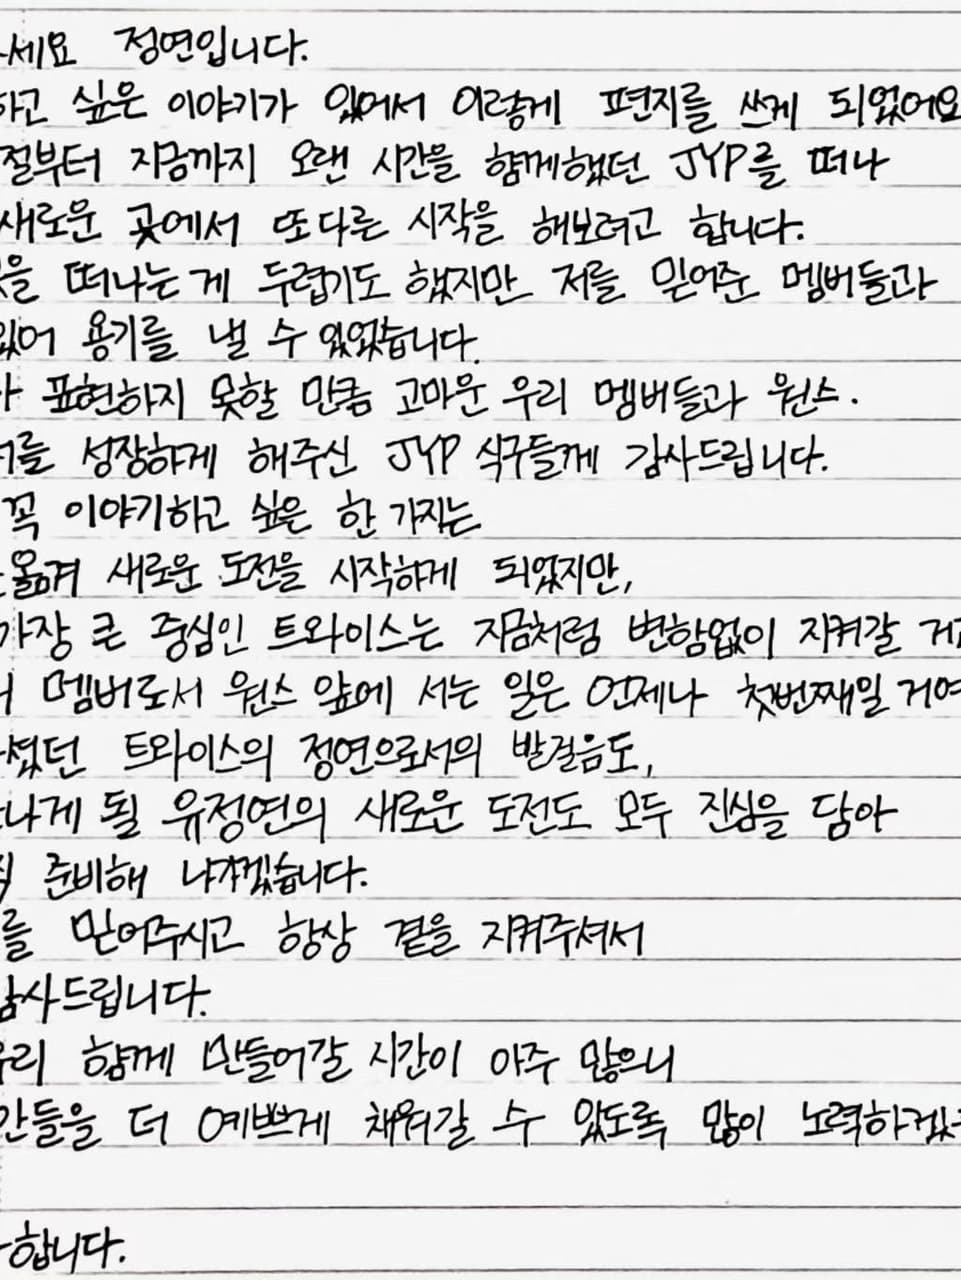 세요 정연입니다.
하고 싶은 이야기가 있어서 이렇게 편지를 쓰게 되었어요
절부터 지금까지 오랜 시간을 함께했던 JYP를 떠나
새로운 곳에서 또 다른 시작을 해보려고 합니다.
을 떠나는 게 두렵기도 했지만 저를 믿어준 멤버들과
있어 용기를 낼 수 있었습니다.
표현하지 못할 만큼 고마운 우리 멤버들과 원스.
를 성장하게 해주신 JYP 식구들께 감사드립니다.
꼭 이야기하고 싶은 한 가지는
옮겨 새로운 도전을 시작하게 되었지만,
가장 큰 중심인 트와이스는 지금처럼 변함없이 지켜갈 거
멤버로서 원스 앞에 서는 일은 언제나 첫번째일 거예
셨던 트와이스의 정연으로서의 발걸음도,
나게 될 유정연의 새로운 도전도 모두 진심을 담아
준비해 나가겠습니다.
를 믿어주시고 항상 곁을 지켜주셔서
감사드립니다.
우리 함께 만들어갈 시간이 아주 많으니
간들을 더 예쁘게 채워갈 수 있도록 많이 노력하겠
합니다.